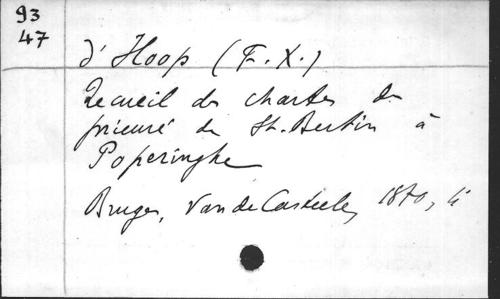 93
47
d'Hoop (F.X.)
Recueil des chartes du
prieuré de St. Bertin à
Poperinghe
Bruges, Van de Casteele, 1870, 4°